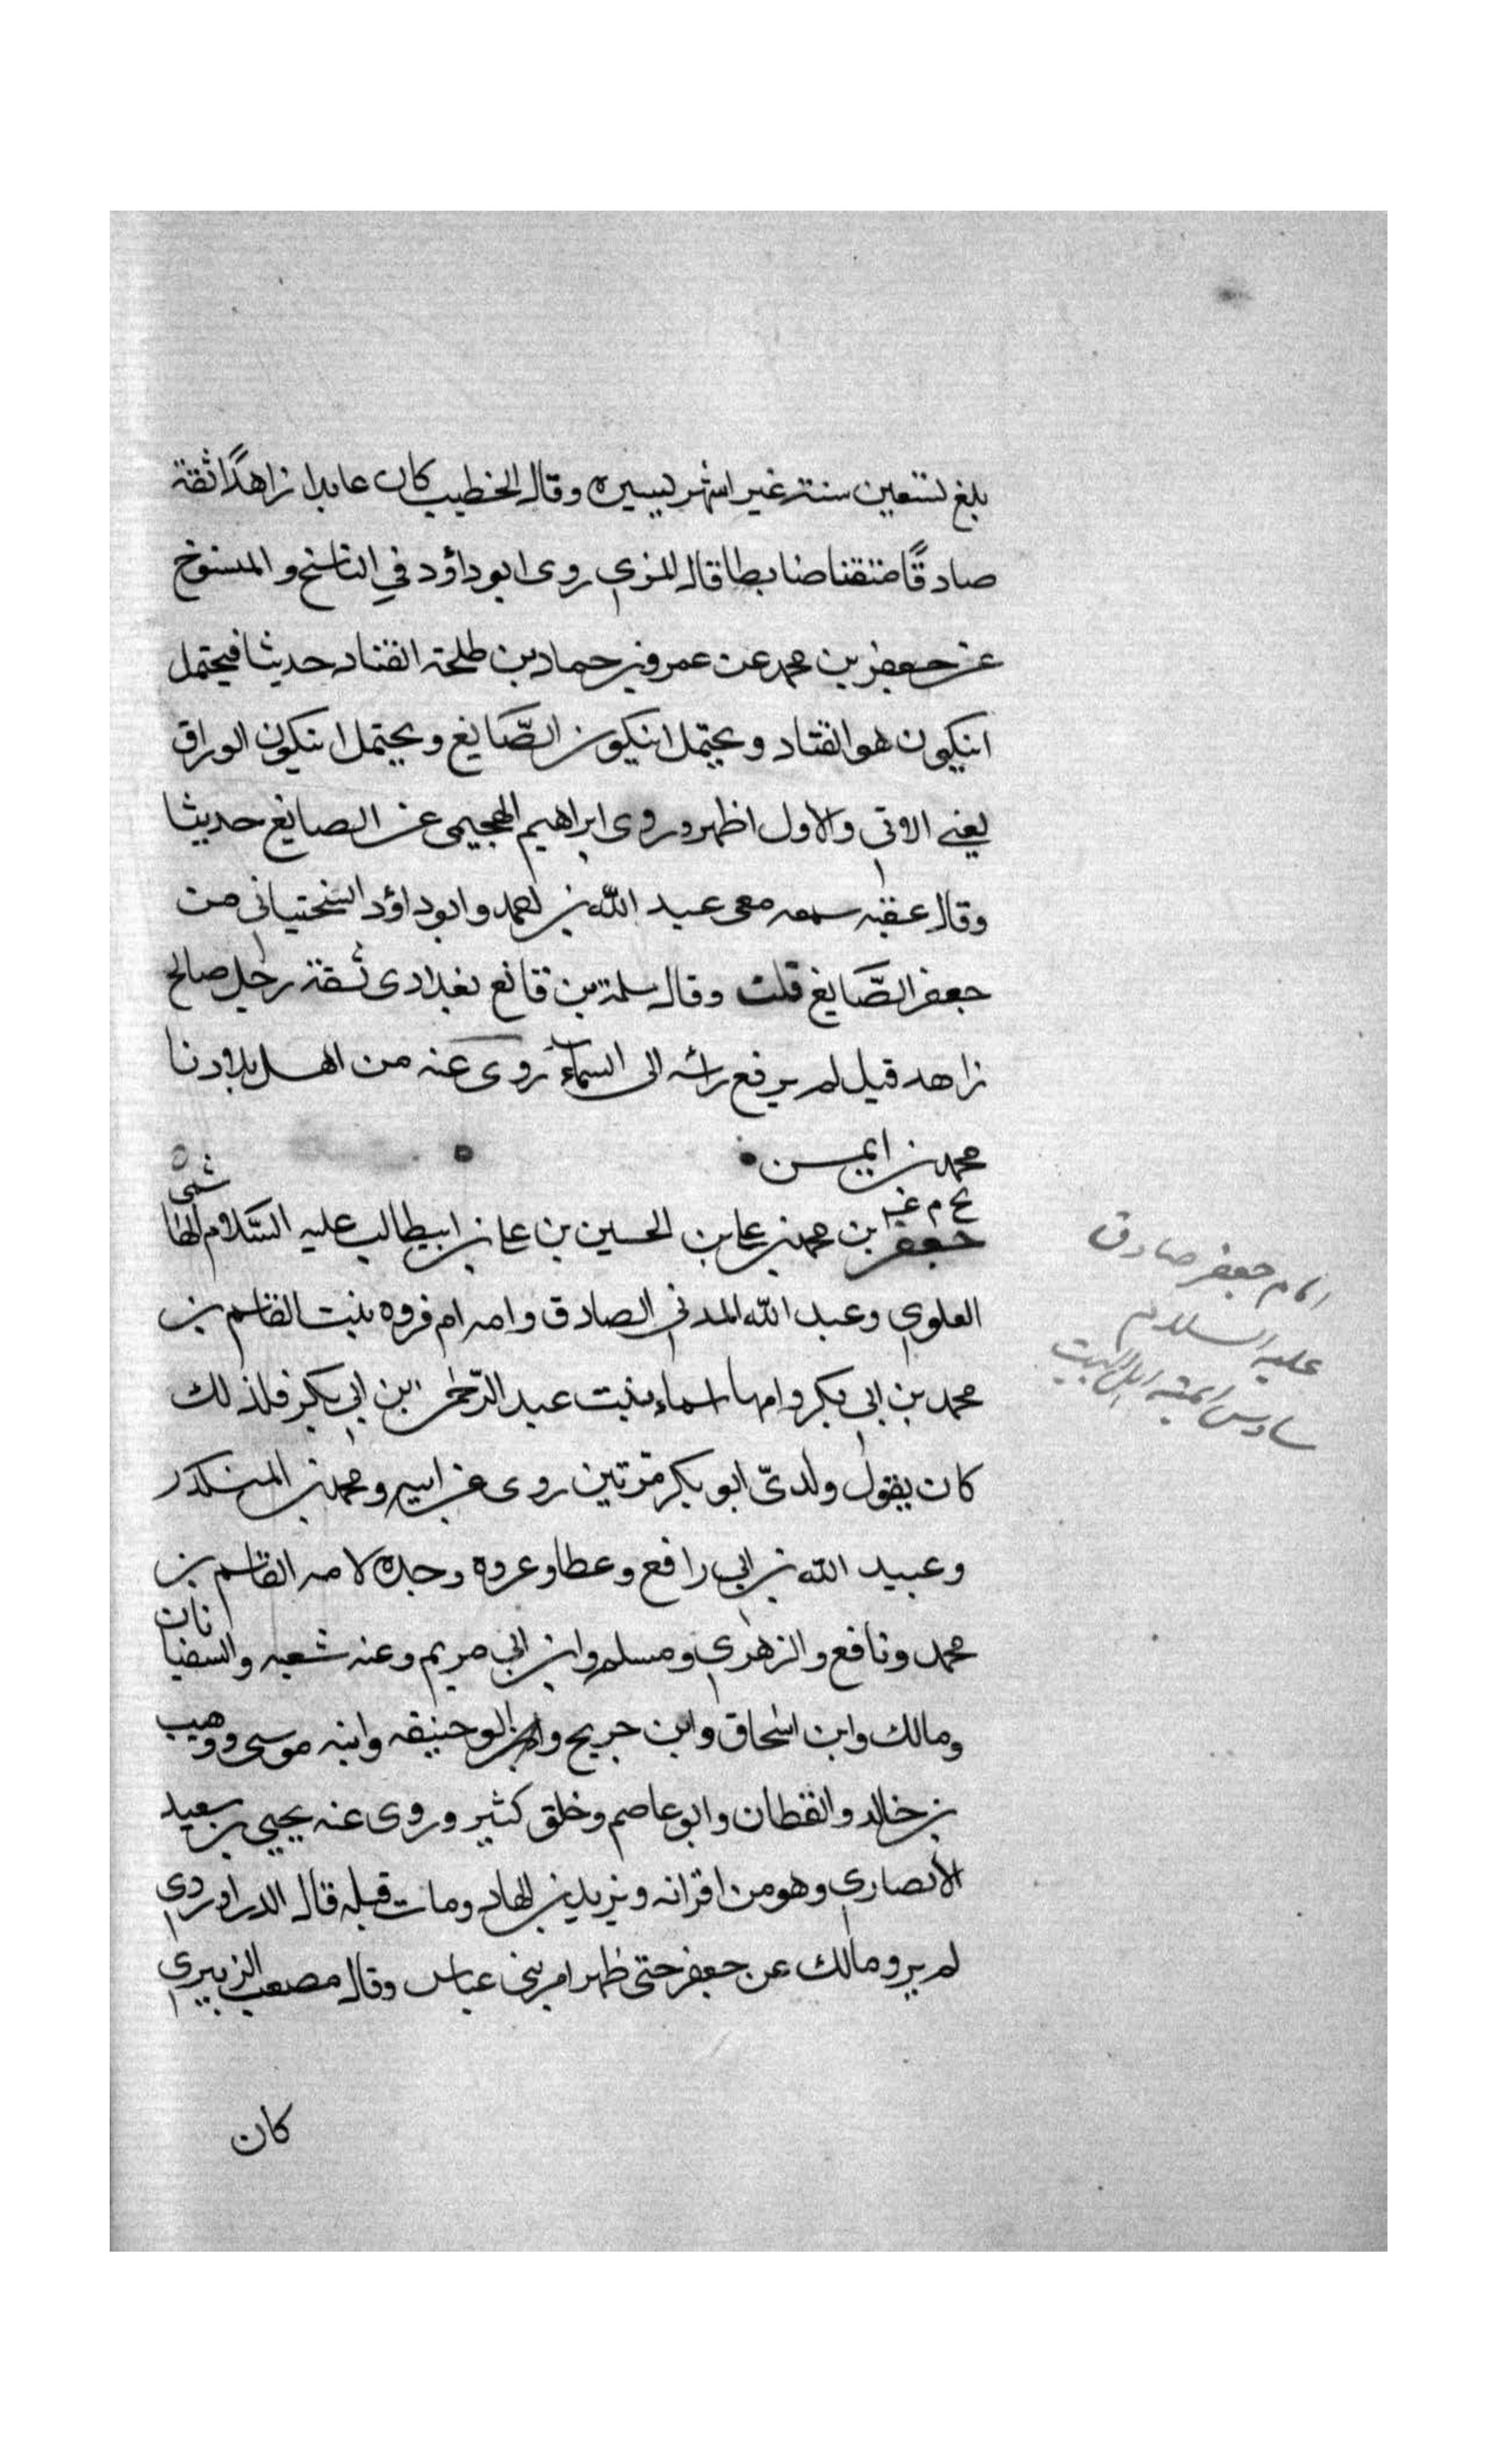 بلغ تسعين سنة غير اشهر يسيره وقال الخطيب كان عابدا زاهدًا ثقة
صادقًا متقنا ضابطا قال المزي روى ابو داؤد في الناسخ والمنسوخ
عن جعفر بن محمد عن عمرو بن حماد بن طلحة القناد حديثا فيحتمل
انيكون هو القناد ويحتمل انيكون الصَّايغ ويحتمل انيكون الوراق
يعني الاتي والاول اظهر وروى ابراهيم الهجيمى عن الصايغ حديثا
وقال عقبه سمعه معى عبد الله بن احمد وابو داؤد السختيانى من
جعفر الصَّايغ قلت وقال سلمة بن قانع بغدادى ثقة رجل صالح
زاهد قيل لم يرفع راسه الى السماء روى عنه من اهل بلادنا
محمد بن ايمن
بخ م عه
جعفر بن محمد بن على بن الحسين بن على بن ابيطالب عليه السَّلام الهاشمى
العلوى وعبد الله المدني الصادق وامه ام فروه بنت القاسم بن
محمد بن ابى بكر وامها اسماء بنت عبد الرّحمٰن بن ابى بكر فلذلك
كان يقول ولدنىّ ابو بكر مرتين روى عن ابيه ومحمد بن المنكدر
وعبيد الله بن ابى رافع وعطا وعروه وجده لامه القاسم بن
محمد ونافع والزهرى ومسلم وابن ابى مريم وعنه شعبه والسفيانان
ومالك وابن اسحاق وابن جريج وابو حنيفه وابنه موسى ووهيب
بن خالد والقطان وابو عاصم وخلق كثير وروى عنه يحيى بن سعيد
الأنصارى وهو من اقرانه ويزيد بن الهاد ومات قبله قال الدراوردى
لم يرو مالك عن جعفر حتى ظهر امر بنى عباس وقال مصعب الزبيرى
كان
امام جعفر صادق
عليه السلام
سادس ايمة اهل البيت